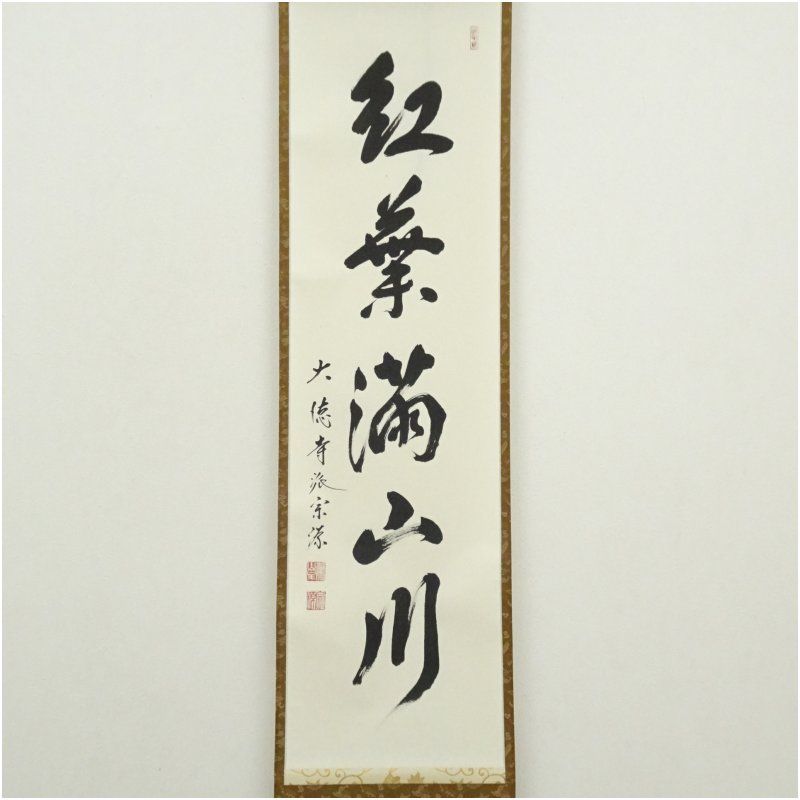 紅葉満山川
大徳寺派宗漾